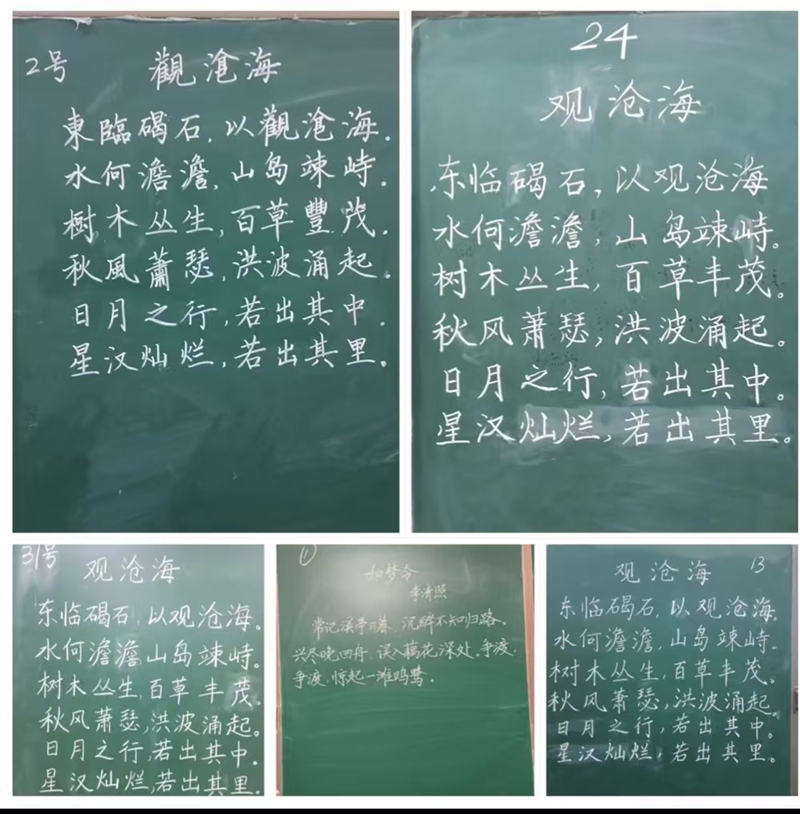 2号
觀滄海
東臨碣石,以觀滄海.
水何澹澹,山岛竦峙.
樹木丛生,百草豐茂.
秋風蕭瑟,洪波涌起.
日月之行,若出其中.
星汉灿烂,若出其里。
24
观沧海
东临碣石,以观沧海
水何澹澹,山岛竦峙。
树木丛生,百草丰茂。
秋风萧瑟,洪波涌起。
日月之行,若出其中。
星汉灿烂,若出其里。
31号
观沧海
东临碣石,以观沧海。
水何澹澹,山岛竦峙。
树木丛生,百草丰茂。
秋风萧瑟,洪波涌起。
日月之行,若出其中.
星汉灿烂,若出其里.
①
如梦令
李清照
常记溪亭日暮、沉醉不知归路。
兴尽晚回舟,误入藕花深处。争渡,
争渡,惊起一滩鸥鹭。
13
观沧海
东临碣石,以观沧海.
水何澹澹,山岛竦峙.
树木丛生,百草丰茂。
秋风萧瑟,洪波涌起.
日月之行,若出其中。
星汉灿烂,若出其里。